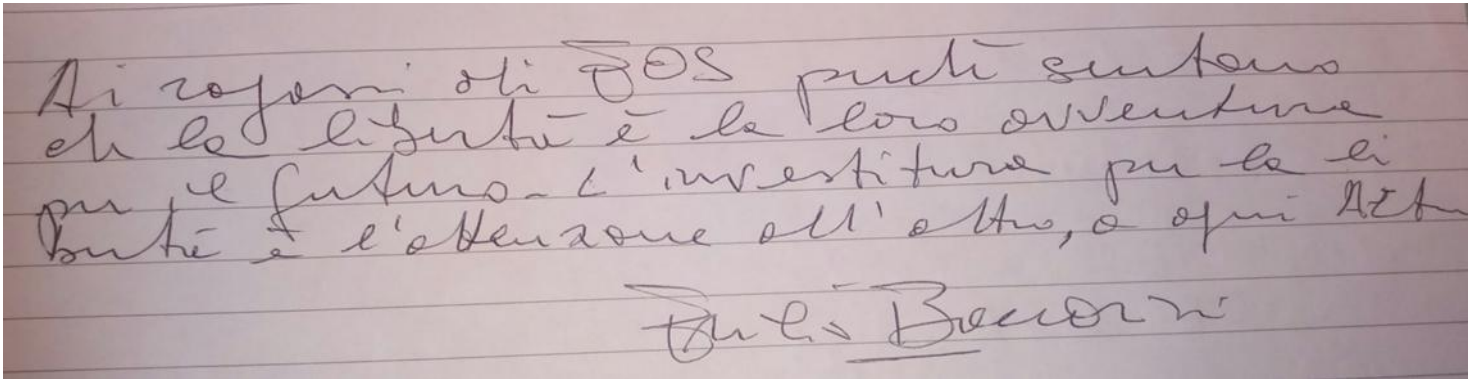 Ai ragazzi di BOS perché sentano
che la libertà è la loro avventura
per il futuro - L'investitura per la li
bertà è l'attenzione all'altro, a ogni Altro